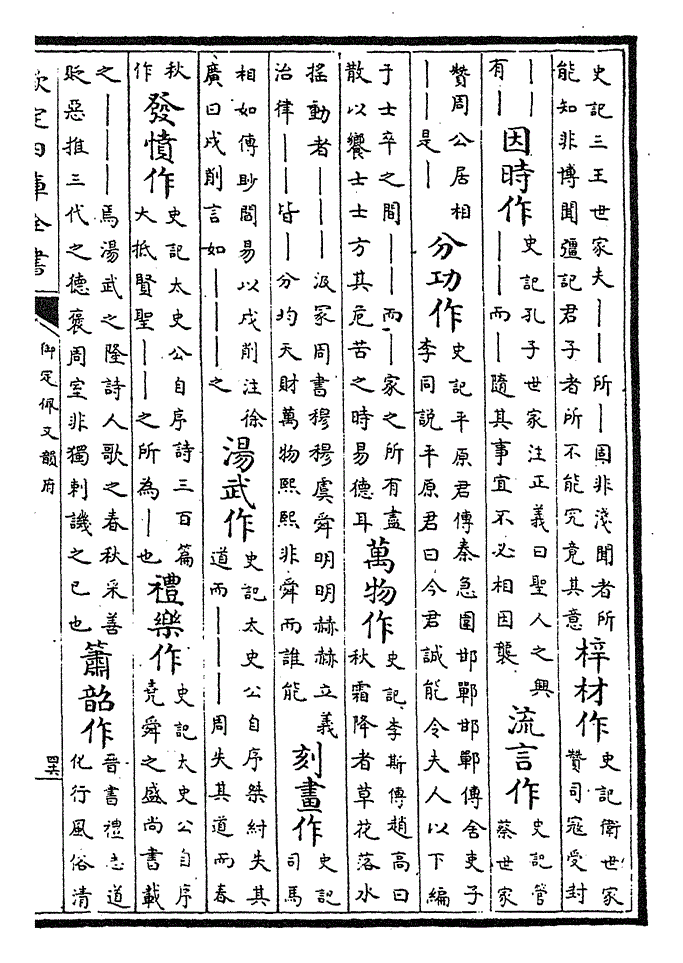 史記三王世家夫丨丨丨所丨固非淺聞者所
能知非博聞彊記君子者所不能究竟其意
梓材作
史記衛世家
贊司寇受封
丨丨
有丨
因時作
史記孔子世家注正義曰聖人之興
丨丨而丨隨其事宜不必相因襲
流言作
史記管
蔡世家
贊周公居相
丨丨是丨
分功作
史記平原君傳秦急圍邯鄲邯鄲傳舍吏子
李同說平原君曰今君誠能令夫人以下編
于士卒之間丨丨而丨家之所有盡
散以饗士士方其危苦之時易德耳
萬物作
史記李斯傳趙高曰
秋霜降者草花落水
搖動者丨丨丨汲冢周書穆穆虞舜明明赫赫立義
治律丨丨皆丨分均天財萬物熙熙非舜而誰能
刻畫作
史記
司馬
相如傳眇閻易以戌削注徐
廣曰戌削言如丨丨丨之
湯武作
史記太史公自序桀紂失其
道而丨丨丨周失其道而春
秋
作
發憤作
史記太史公自序詩三百篇
大抵賢聖丨丨之所為丨也
禮樂作
史記太史公自序
堯舜之盛尚書載
之丨丨丨焉湯武之隆詩人歌之春秋采善
貶惡推三代之德褒周室非獨刺譏之已也
簫韶作
晉書禮志道
化行風俗清
欽定四庫全書
御定佩文韻府
四六